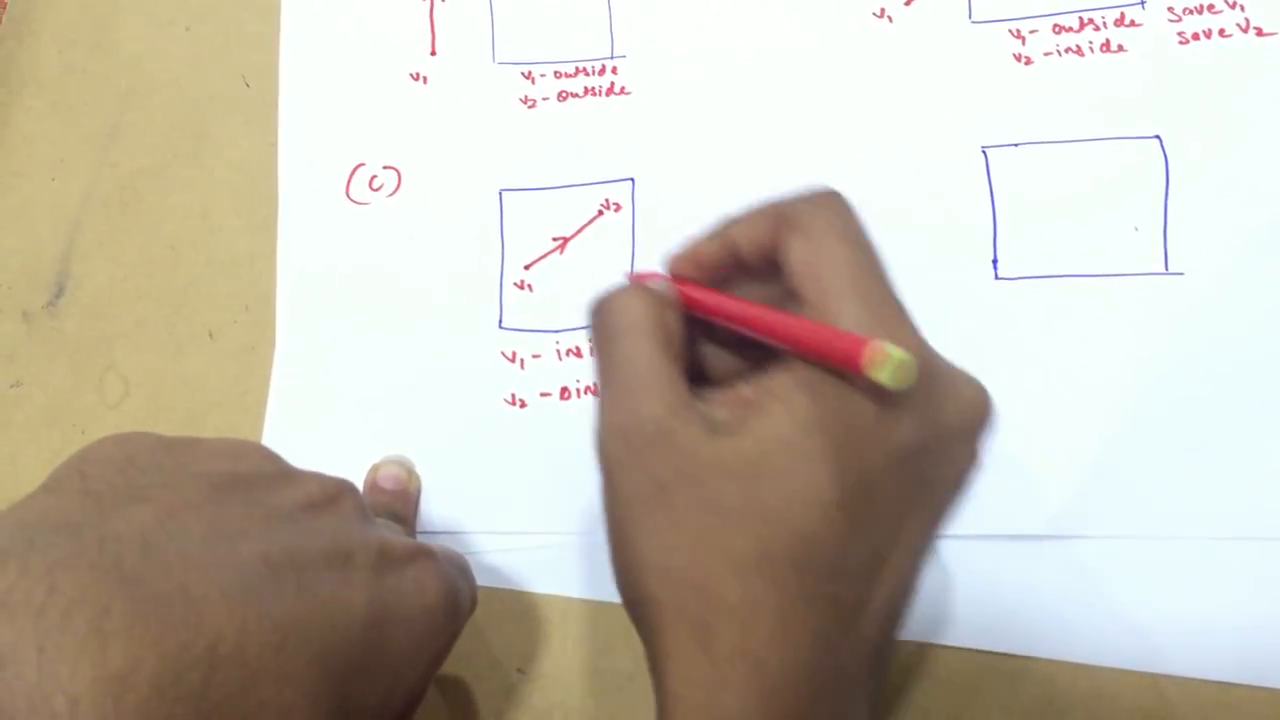 v1
v1 - outside
v2 - outside
v1
v1 - outside
v2 - inside
save v1
save v2
(C)
v2
v1
v1 - insi
v2 -